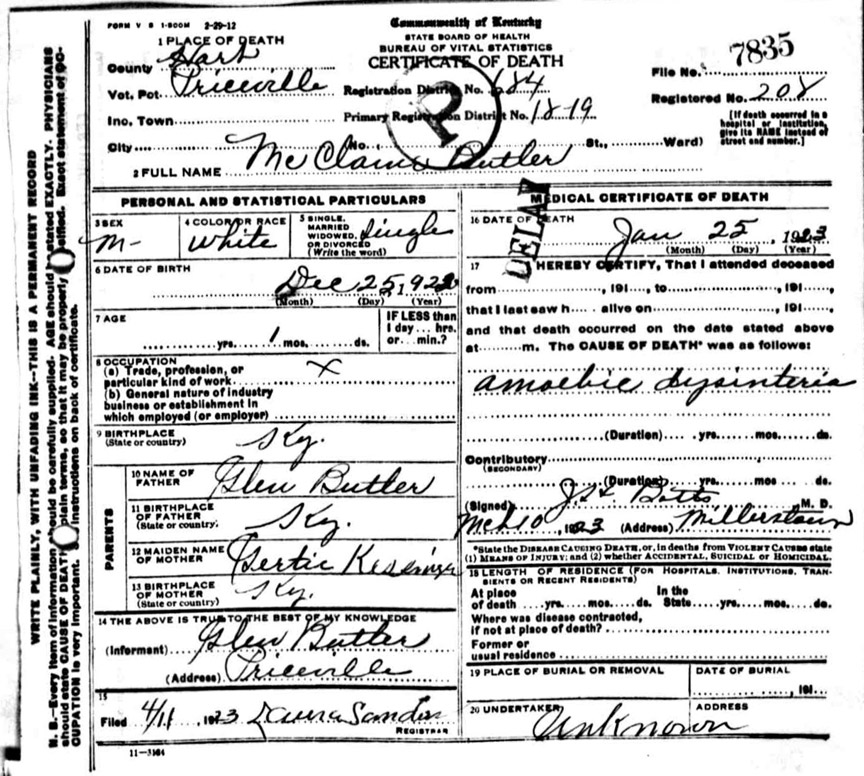 FORM V S 1-500M 2-29-12
Commonwealth of Kentucky
STATE BOARD OF HEALTH
BUREAU OF VITAL STATISTICS
CERTIFICATE OF DEATH
1 PLACE OF DEATH
County Hart
Vot. Pct. Priceville
Inc. Town
City
Registration District No. 684
Primary Registration District No. 1819
No. St., Ward)
R
File No. 7835
Registered No. 208
[If death occurred in a hospital or institution, give its NAME instead of street and number.]
2 FULL NAME McClaine Butler
PERSONAL AND STATISTICAL PARTICULARS
3 SEX M-
4 COLOR OR RACE White
5 SINGLE, MARRIED WIDOWED, OR DIVORCED (Write the word) Single
6 DATE OF BIRTH
Dec 25, 1922
(Month) (Day) (Year)
7 AGE
yrs. 1 mos. ds.
IF LESS than 1 day ... hrs. or ... min.?
8 OCCUPATION
(a) Trade, profession, or particular kind of work X
(b) General nature of industry business or establishment in which employed (or employer)
9 BIRTHPLACE
(State or country) Ky.
PARENTS
10 NAME OF FATHER Glen Butler
11 BIRTHPLACE OF FATHER (State or country) Ky.
12 MAIDEN NAME OF MOTHER Gertie Kessinger
13 BIRTHPLACE OF MOTHER (State or country) Ky.
14 THE ABOVE IS TRUE TO THE BEST OF MY KNOWLEDGE
(Informant) Glen Butler
(Address) Priceville
15
Filed 4/11 1923 Laura Sanders
REGISTRAR
11-3184
MEDICAL CERTIFICATE OF DEATH
DELAY
16 DATE OF DEATH
Jan 25, 1923
(Month) (Day) (Year)
17 I HEREBY CERTIFY, That I attended deceased
from , 191 , to , 191 ,
that I last saw h alive on , 191 ,
and that death occurred on the date stated above
at m. The CAUSE OF DEATH* was as follows:
Amoebic dysinteria
(Duration) yrs. mos. ds.
Contributory
(SECONDARY)
(Duration) yrs. mos. ds.
(Signed) Botts M. D.
Mch 10 1923 (Address) Millerstown
*State the DISEASE CAUSING DEATH, or, in deaths from VIOLENT CAUSES state (1) MEANS OF INJURY; and (2) whether ACCIDENTAL, SUICIDAL or HOMICIDAL.
18 LENGTH OF RESIDENCE (FOR HOSPITALS, INSTITUTIONS, TRANSIENTS OR RECENT RESIDENTS)
At place of death yrs. mos. ds. In the State yrs. mos. ds.
Where was disease contracted, if not at place of death?
Former or usual residence
19 PLACE OF BURIAL OR REMOVAL
DATE OF BURIAL
, 191
20 UNDERTAKER
ADDRESS
Unknown
WRITE PLAINLY, WITH UNFADING INK—THIS IS A PERMANENT RECORD
N. B.—Every item of information should be carefully supplied. AGE should be stated EXACTLY. PHYSICIANS
should state CAUSE OF DEATH in plain terms, so that it may be properly classified. Exact statement of OC-
CUPATION is very important. See instructions on back of certificate.